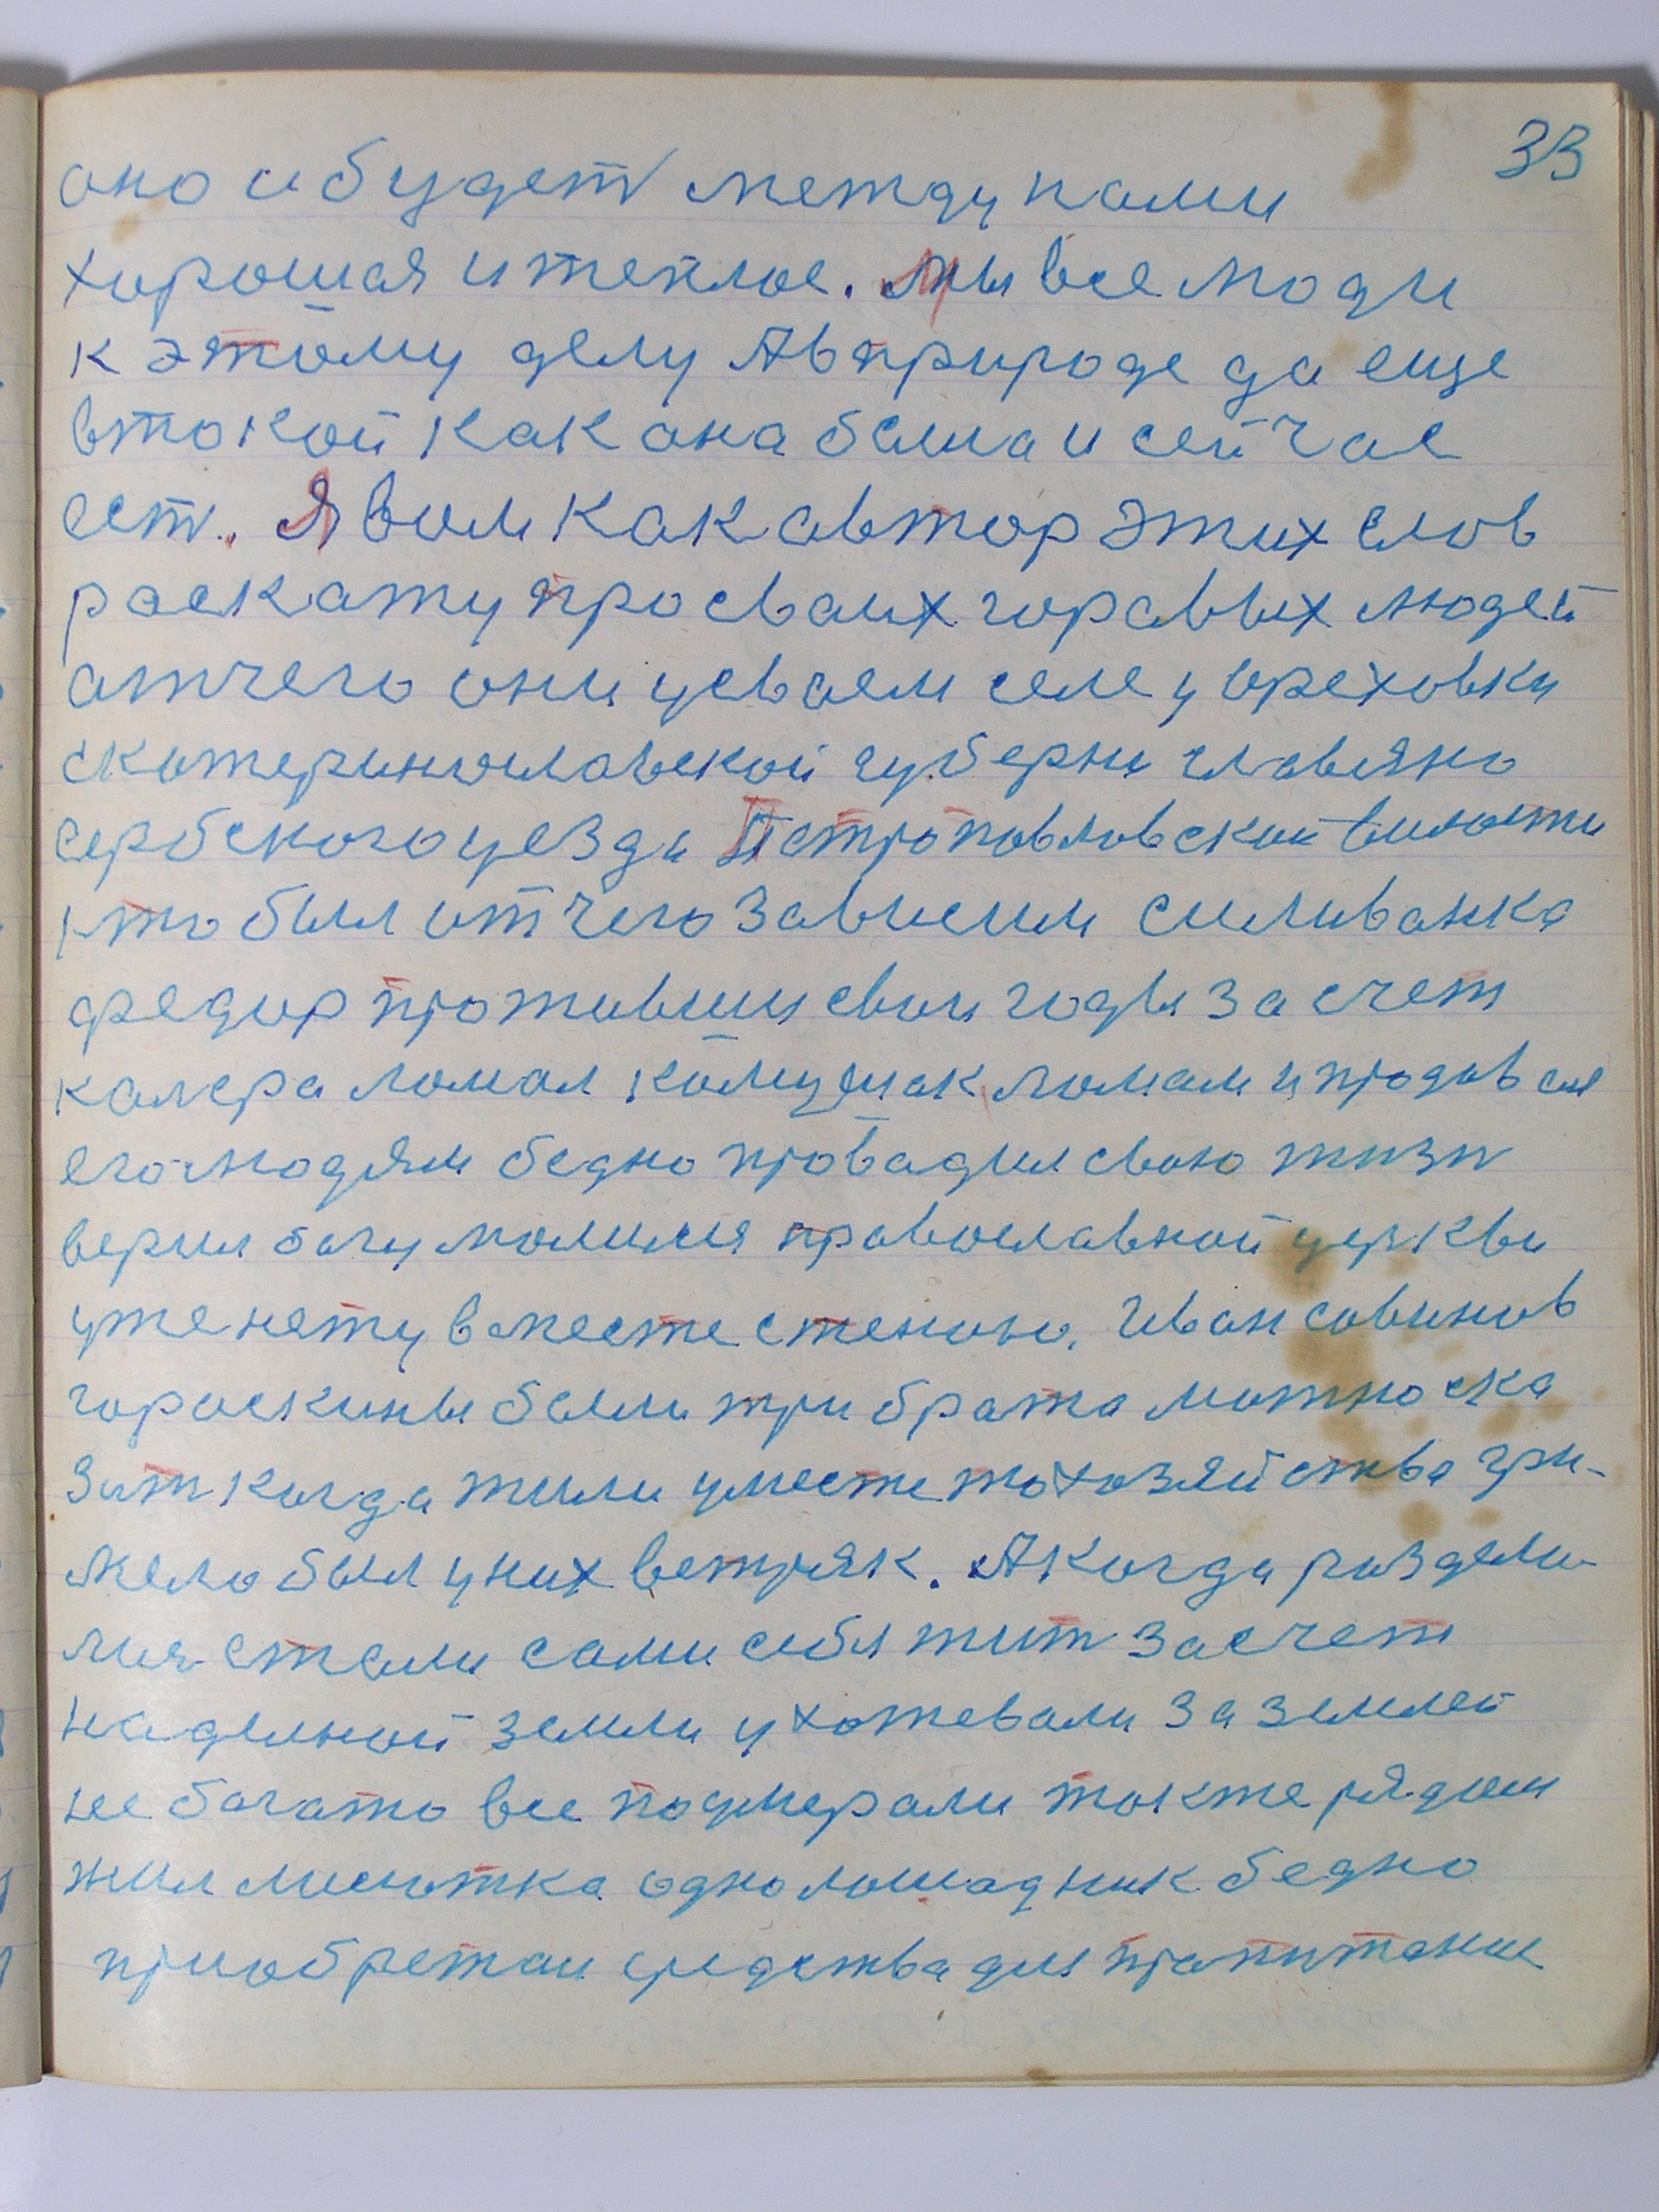 33
оно и будет между нами
хорошая и теплое. Мы все люди
к этому делу А в природе да еще
в такой как она была и сейчас
ест. Я вам как автор этих слов
раскажу про сваих горавых людей
атчего они усваем селе у Ореховки
екатеринославской губерни славяно
сербского уезда Петропавловской волости
кто был от чего зависим силиванка
федор проживши свои годы за счет
калера ломал камушак ломал и продавал
его людям бедно провадил свою жизн
верил богу молился православной церкви
уже нету в месте с теною. Иван савинов
гораскины были три брата матюшка
зит когда жили уместе то хозяйства гри-
мело был у них ветряк. А когда раздели-
лися стали сами себя жит за счет
наделной земли ухажевали за землей
не богато все поумерали так же рядом
жил лисютка однолошадник бедно
приобретал средства для прапитание